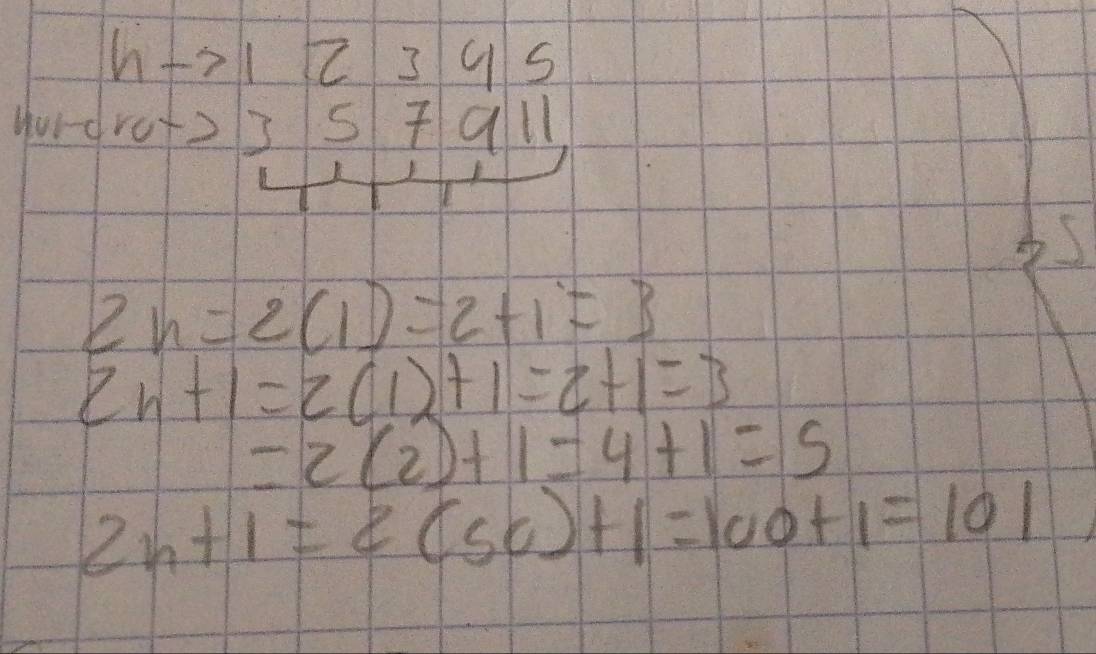 n -> 1 2 3 4 5
-> 3 5 7 9 11
2n = 2(1) = 2+1 = 3
2n+1 = 2(1)+1 = 2+1 = 3
= 2(2)+1 = 4+1 = 5
2n+1 = 2(50)+1 = 100+1 = 101